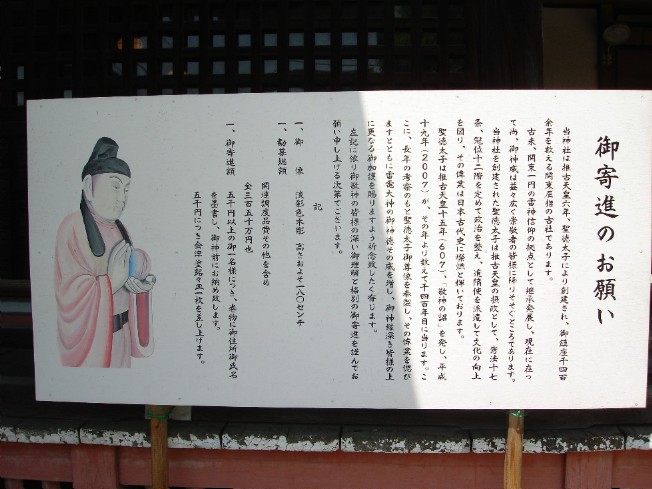 御寄進のお願い
当神社は推古天皇六年、聖徳太子により創建され、御鎮座千四百
余年を数える関東屈指の古社であります。
古来、関東一円の雷神信仰の拠点として継承発展し、現在に在っ
て尚、御神威は益々広く崇敬者の皆様に降りそそぐところであります。
当神社を創建された聖徳太子は推古天皇の摂政として、憲法十七
条、冠位十二階を定めて政治を整え、遣隋使を派遣して文化の向上
を図り、その偉業は日本古代史に燦然と輝いております。
聖徳太子は推古天皇十五年(607)、「敬神の詔」を発し、平成
十九年(2007)が、その年より数えて千四百年目に当ります。こ
こに、長年の考察のもと聖徳太子御尊像を奉製し、その偉業を偲び
ますとともに雷電大神の御神徳その威を増し、御神縁深き皆様の上
に更なる御加護を賜りますよう祈念致したく存じます。
左記に依り御敬神の皆様の深い御理解と格別の御寄進を謹んでお
願い申し上げる次第でございます。
記
一、御像 淡彩色木彫 高さおよそ一八〇センチ
一、勧募総額
関連調度品費その他を含め
金三百五十万円也
一、御寄進額 五千円以上の御一名様につき、巻物に御住所御氏名
を墨書し、御神前にお納め致します。
五千円につき会津塗銘々皿一枚を差し上げます。